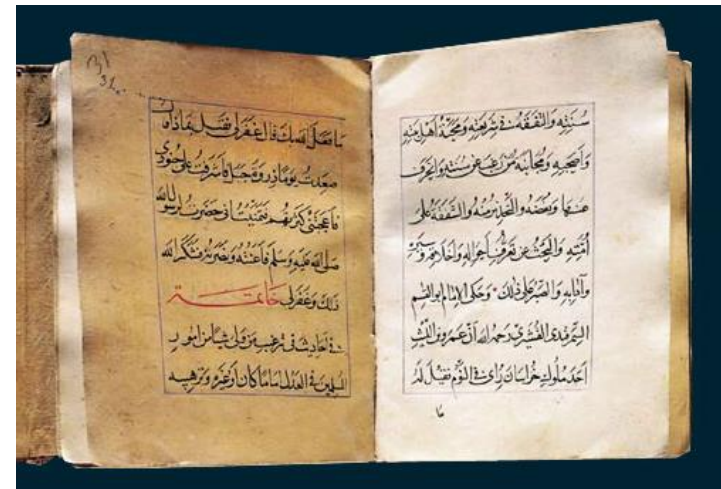 سنته والتفقه في شريعته ومحبة اهل بيته
واصحبه ومجانبة من رغب عن سنته وانحرف
عنها وبغضه والتحذير منه والشفقة على
امته والبحث عن تعرف احواله واخلاقه وسيره
وآدابه والصبر على ذلك وحكى الامام ابو القسم
القشيري رحمه الله أن عمرو بن الليث
احد ملوك خراسان رُأي في النوم فقيل له
ما
ما فعل الله بك قال غفر لي فقيل بماذا قال
صعدت يوما ذروة جبل فاشرفت على جنودي
فاعجبتني كثرتهم فتمنيت أني حضرت لرسول الله
صلى الله عليه وسلم فاعنته ونصرته فشكر الله
ذلك وغفر لي خاتمة
في احاديث في ترغيب من ولي شيئا من امور
المسلمين في العدل اماما كان او غيره وترهيبه